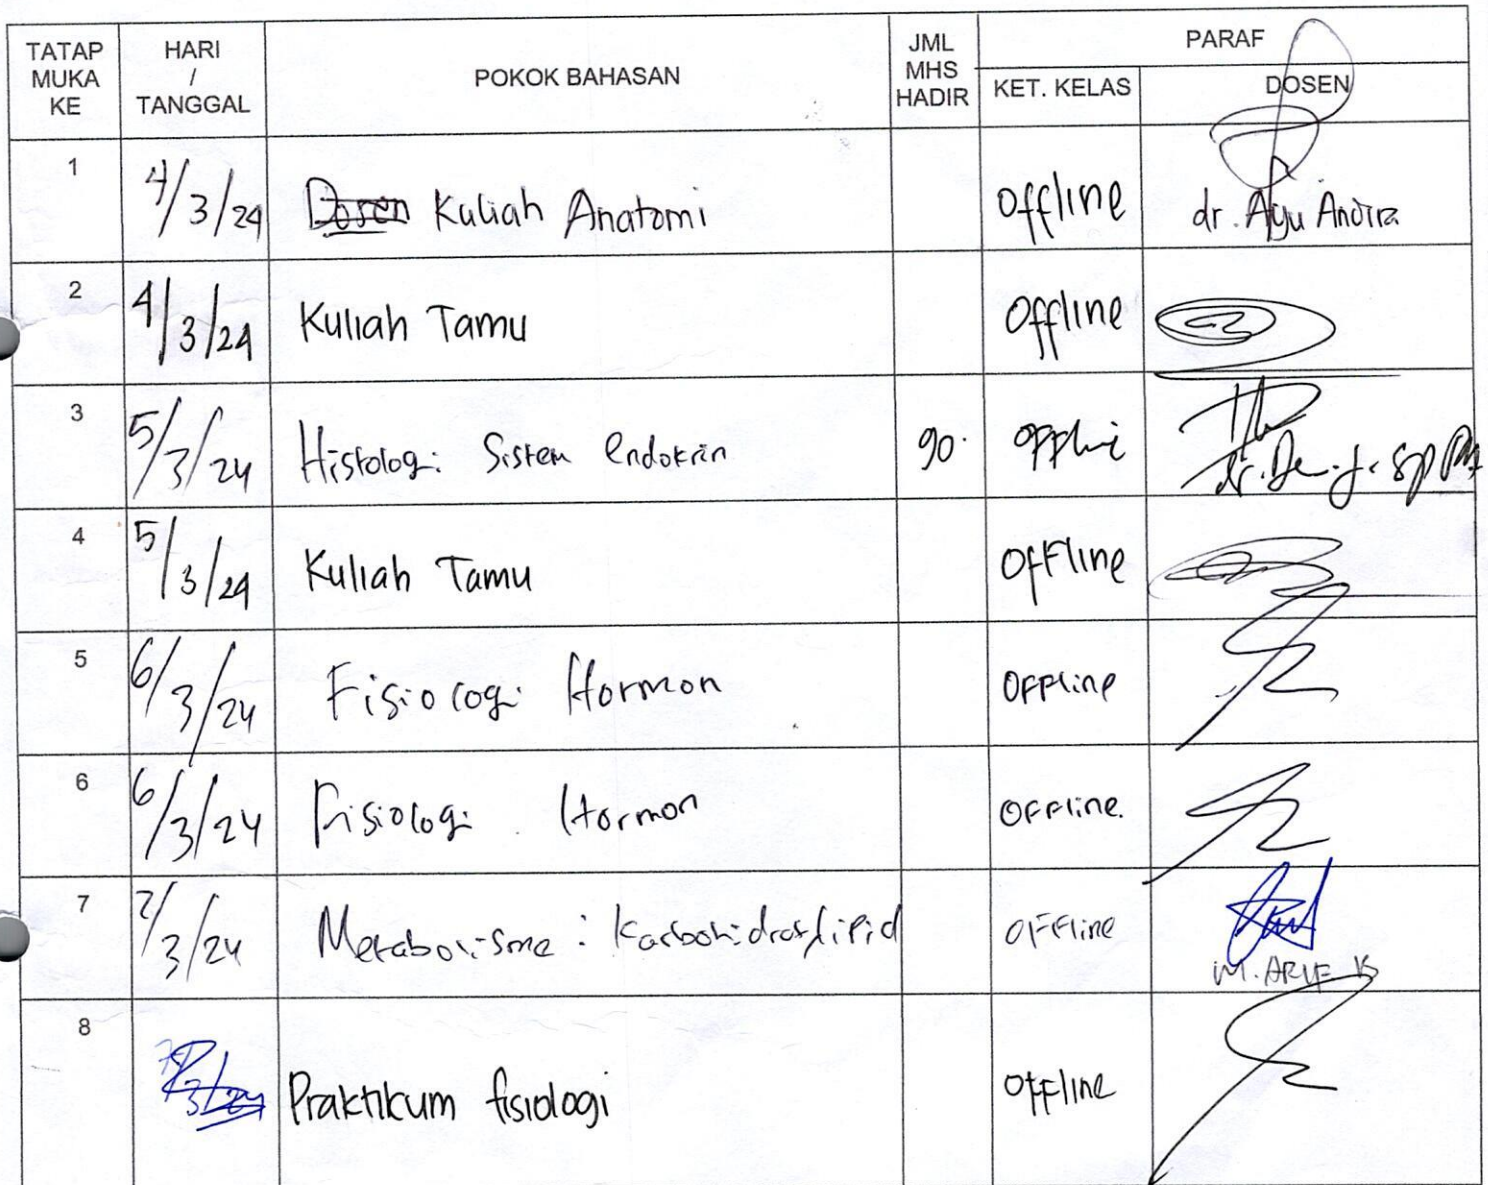 TATAP MUKA KE
HARI / TANGGAL
POKOK BAHASAN
JML MHS HADIR
PARAF
KET. KELAS
DOSEN
1 4/3/24 Dosen Kuliah Anatomi Offline dr. Ayu Andira
2 4/3/24 Kuliah Tamu Offline
3 5/3/24 Histologi Sistem endokrin 90
4 5/3/24 Kuliah Tamu Offline
5 6/3/24 Fisiologi Hormon Offline
6 6/3/24 Fisiologi Hormon Offline.
7 7/3/24 Metabolisme : Karbohidrat Lipid Offline M. ARIF
8 Praktikum fisiologi Offline